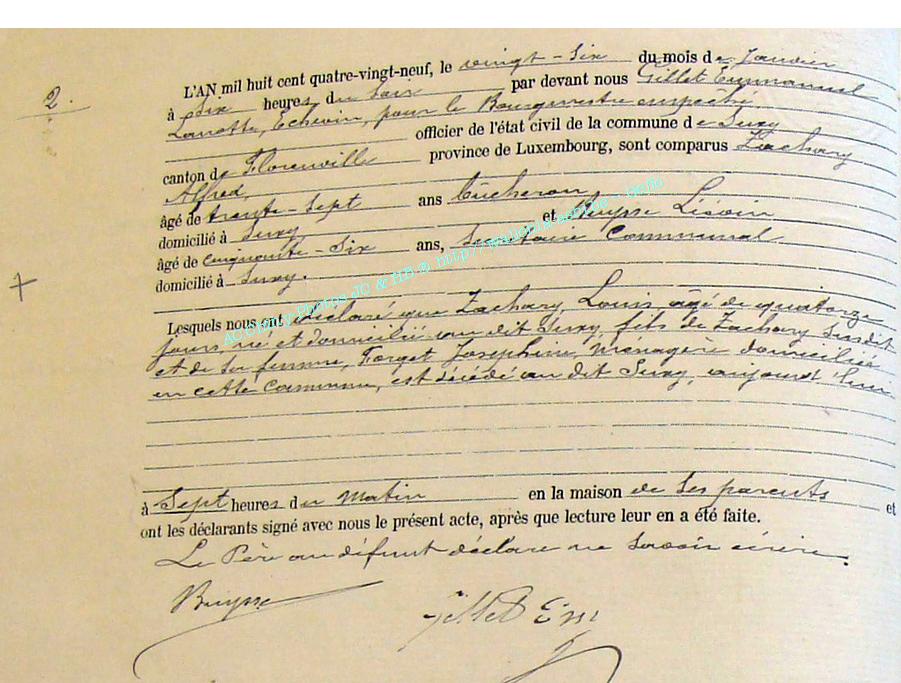 2.
L'AN mil huit cent quatre-vingt-neuf, le vingt-six du mois de Janvier
à Six heures du Soir par devant nous Gillet Emmanuel
Echevin, pour le Bourgmestre empêché,
officier de l'état civil de la commune de Suxy
canton de Florenville province de Luxembourg, sont comparus Zachary
Alfred,
âgé de trente-Sept ans bûcheron,
domicilié à Suxy et Buysse
âgé de cinquante-Six ans, Secrétaire Communal
domicilié à Suxy.
Lesquels nous ont déclaré que Zachary, Louis âgé de quatorze
jours, né et domicilié au dit Suxy, fils de Zachary Susdit
et de sa femme, Forget Joséphine, Ménagère domiciliés
en cette Commune, est décédé au dit Suxy, aujourd'hui
à Sept heures du Matin en la maison de Ses parents et
ont les déclarants signé avec nous le présent acte, après que lecture leur en a été faite.
Le Père au défunt déclare ne Savoir écrire.
Buysse Gillet Em